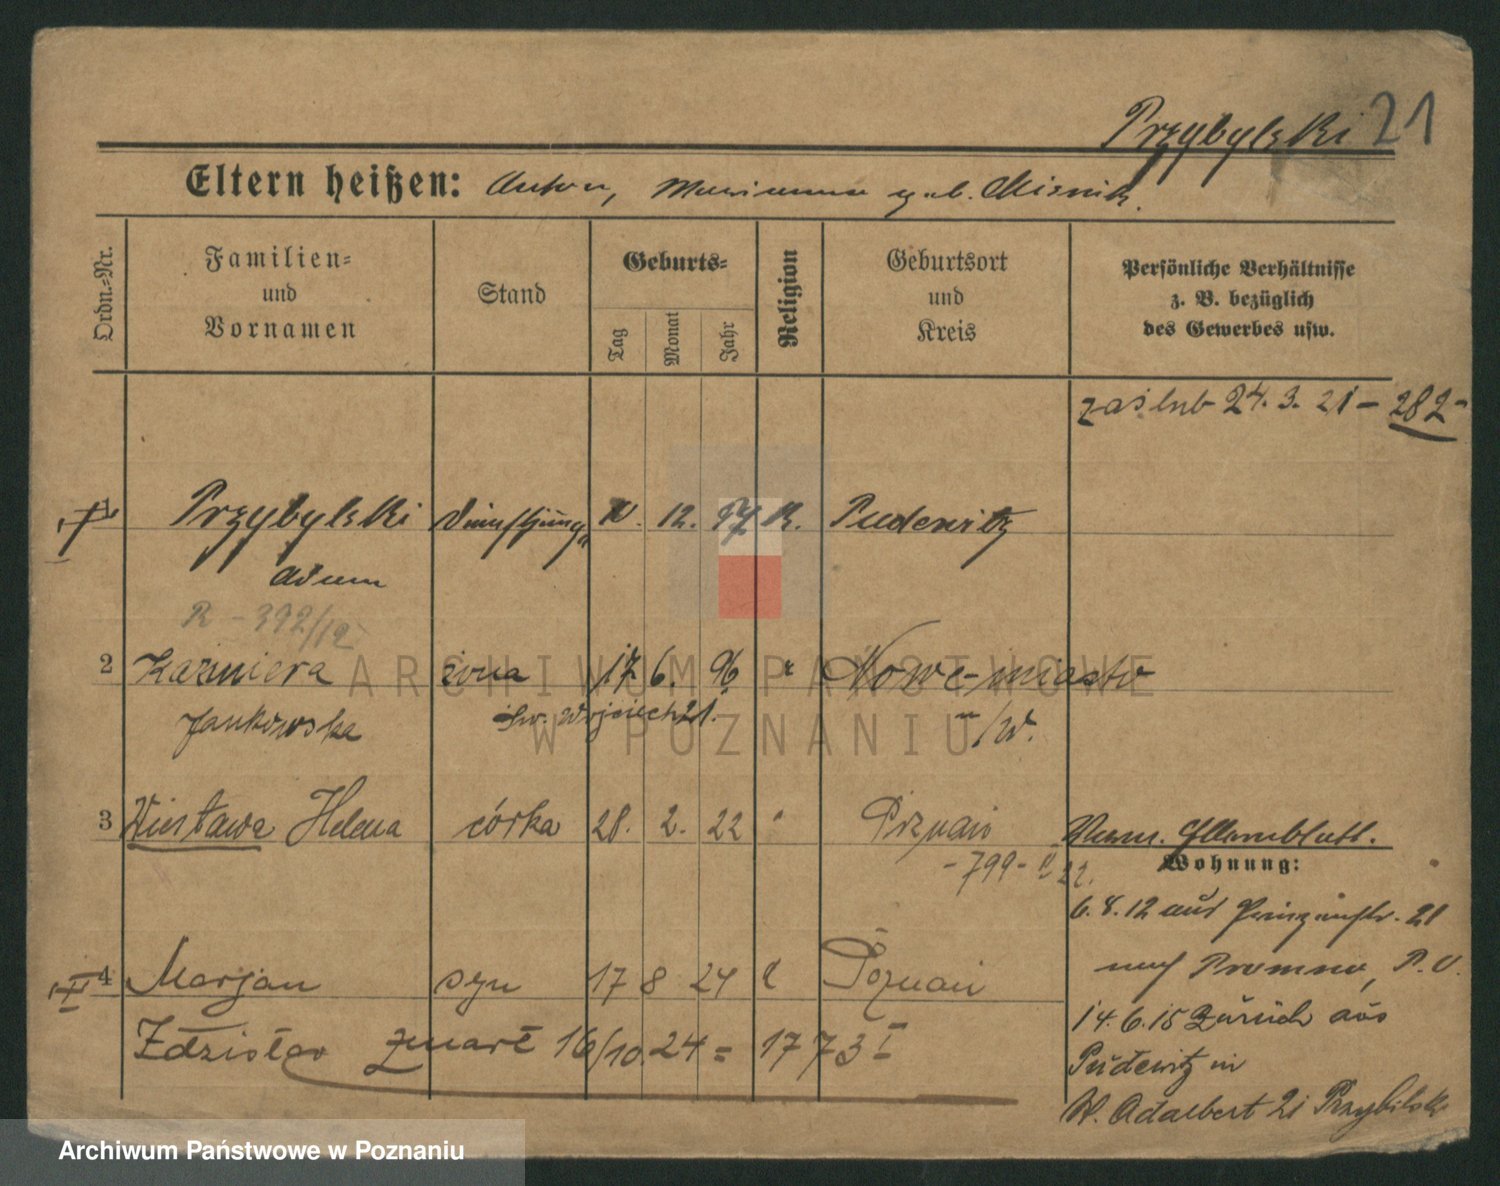 Przybylski 21
Eltern heißen: Anton, Marianna geb. Misnik.
Ordn.=Nr.
Familien=
und
Vornamen
Stand
Geburts=
Tag
Monat
Jahr
Religion
Geburtsort
und
Kreis
Persönliche Verhältnisse
z. B. bezüglich
des Gewerbes usw.
zaślub 24. 3. 21 - 282 -
1 Przybylski 12. 97 K. Pudewitz
Adam
R - 392/12
2 Kazmiera żona 17 6. 96 " Nowe-miasto
Jankowska św. Wojciech 21. n/W.
3 Wiesława Helena córka 28. 2. 22 " Poznań
- 799 - II 22.
Verm. Elternblatt.
Wohnung:
6. 8. 12 aus Prinzenstr. 21
nach Promno, P. O.
4 Marjan syn 17 8 24 k Poznań
14. 6. 15 Zurück aus
Zdzisław zmarł 16/10. 24 = 1773 I
Pudewitz in
St. Adalbert 21 Przybilski
ARCHIWUM PAŃSTWOWE
W POZNANIU
Archiwum Państwowe w Poznaniu